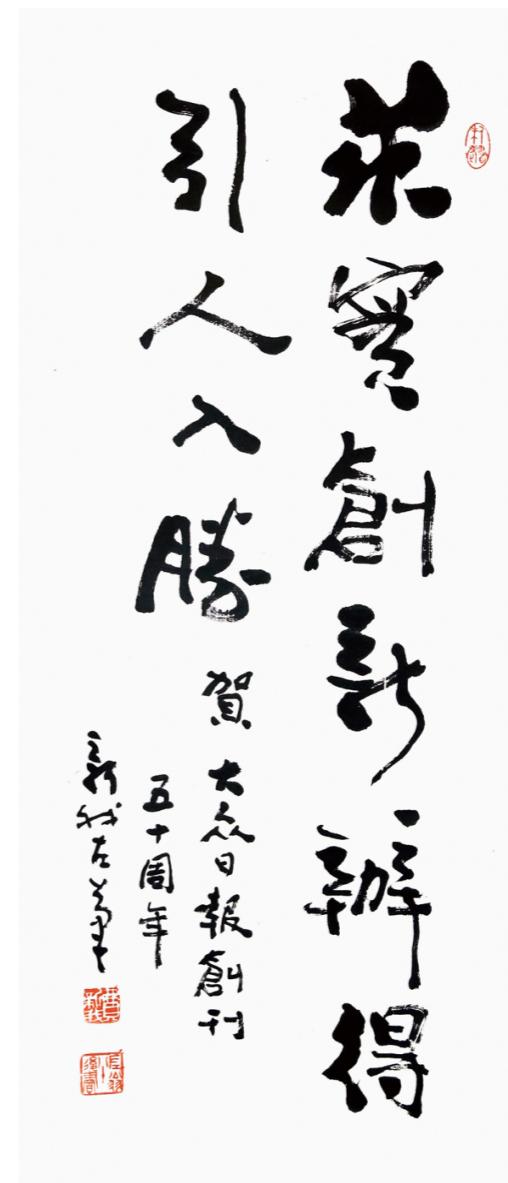 求實創新辦得
引人入勝
賀大众日報創刊
五十周年
新我左筆